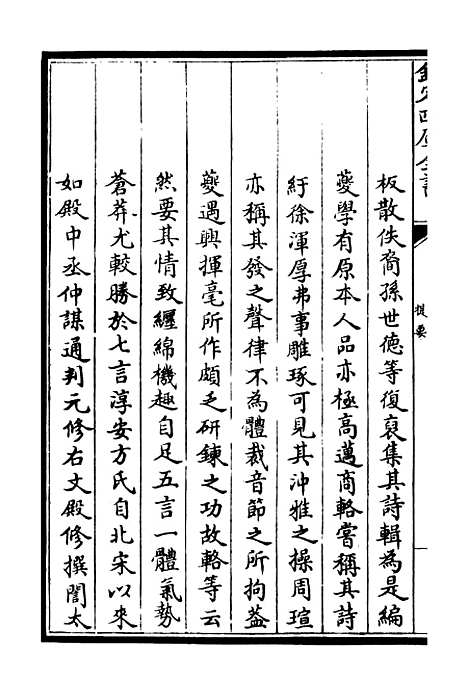 欽定四庫全書
提要
板散佚裔孫世德等復裒集其詩輯為是編
夔學有原本人品亦極高邁商輅嘗稱其詩
紆徐渾厚弗事雕琢可見其沖雅之操周瑄
亦稱其發之聲律不為體裁音節之所拘葢
夔遇興揮毫所作頗乏研鍊之功故輅等云
然要其情致纒綿機趣自足五言一體氣勢
蒼莽尤較勝於七言淳安方氏自北宋以來
如殿中丞仲謀通判元修右文殿修撰誾太